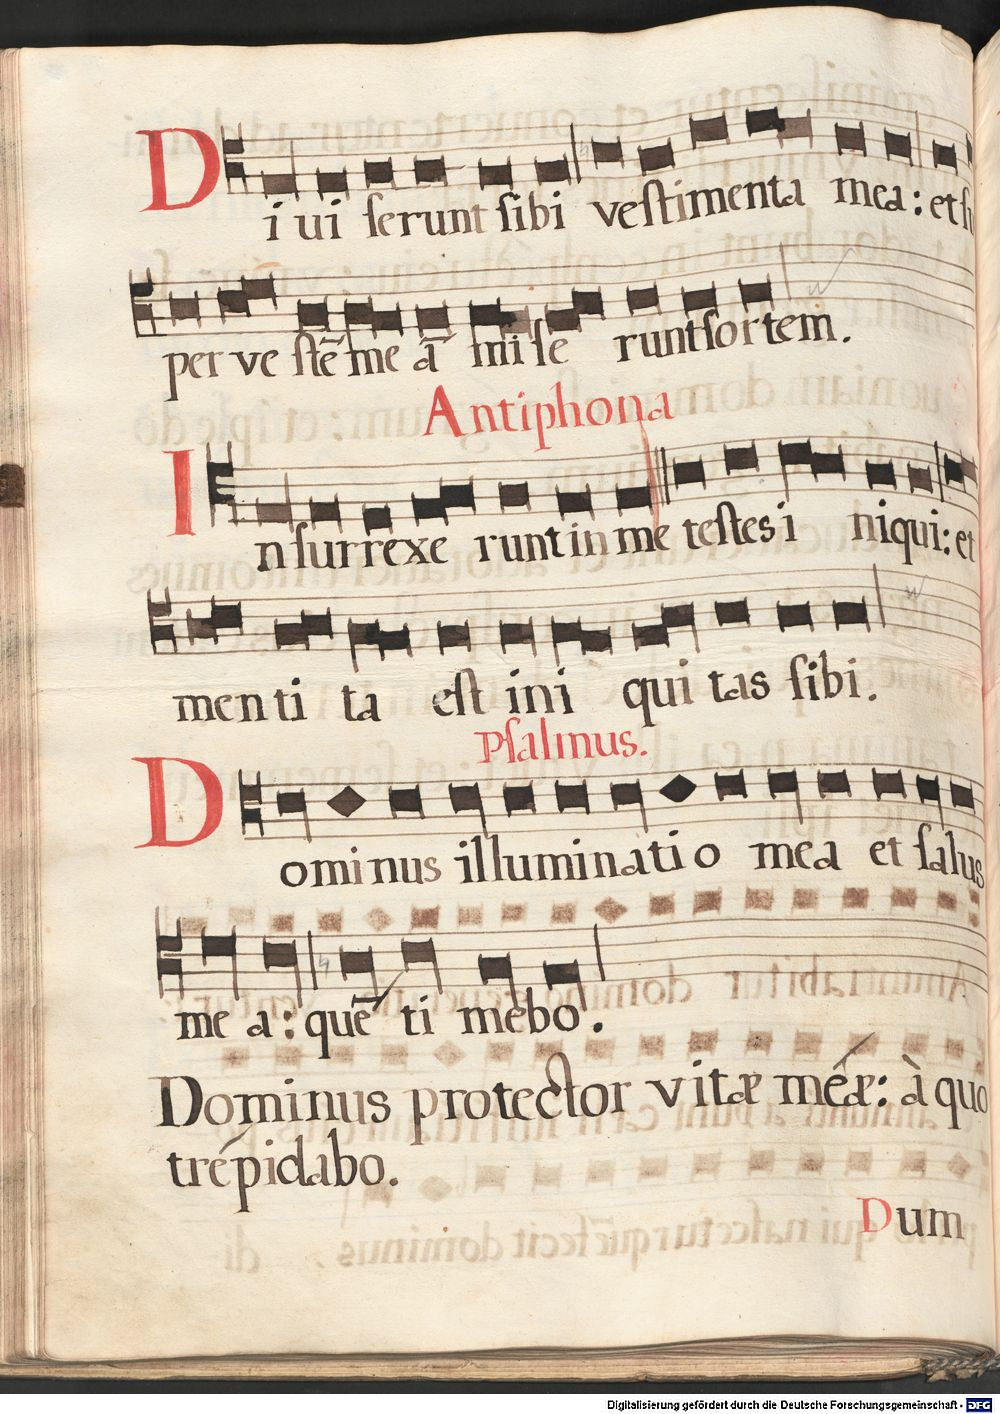 Di ui ſerunt ſibi veſtimenta mea: et ſu
per ve ſtē me ā mi ſe runt ſortem.
Antiphona
Inſurrexe runt in me teſtes i niqui: et
men ti ta eſt ini qui tas ſibi.
Pſalmus.
Dominus illuminatio mea et ſalus
me a: quē ti mebo.
Dominus protector vitæ méæ: à quo
trépidabo.
Dum
Digitalisierung gefördert durch die Deutsche Forschungsgemeinschaft - DFG